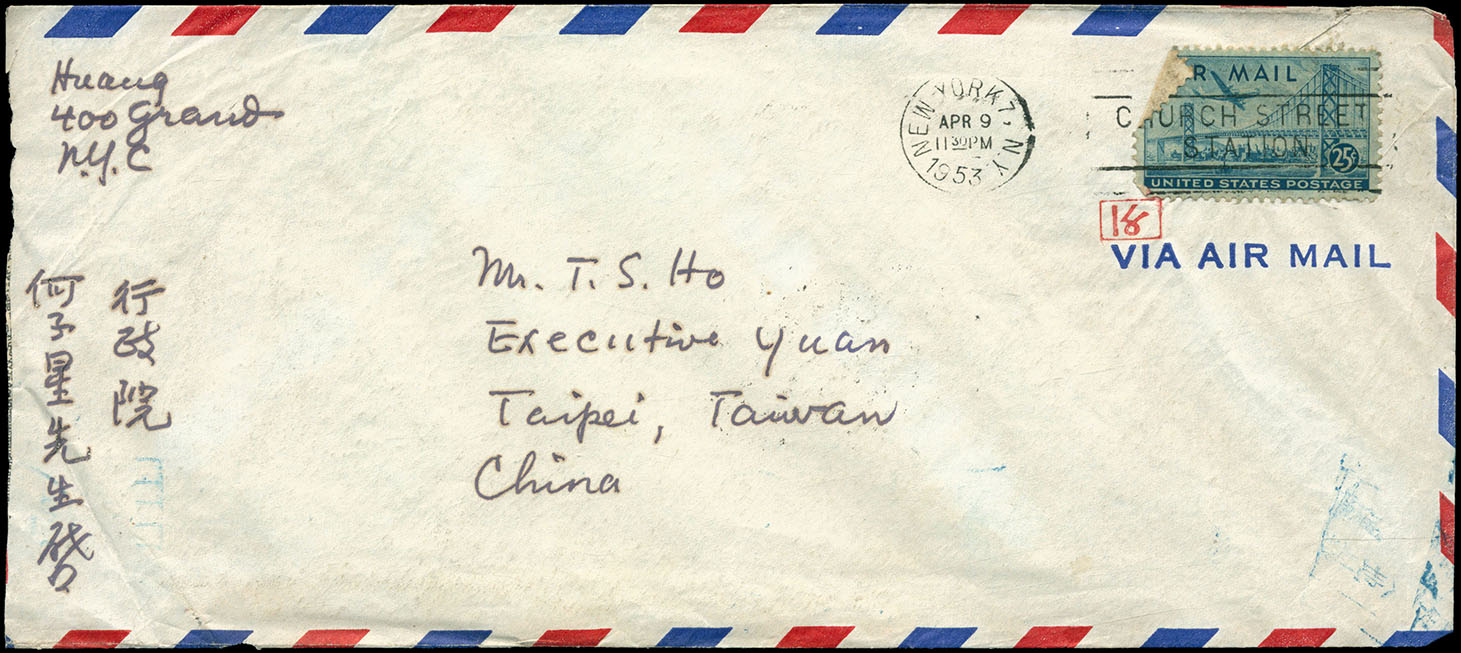 Huang
400 Grand
N.Y.C
NEW YORK 7, N.Y.
APR 9
11 30 PM
1953
R MAIL
CHURCH STREET
STATION
25¢
UNITED STATES POSTAGE
VIA AIR MAIL
Mr. T. S. Ho
Executive Yuan
Taipei, Taiwan
China
行政院
何子星先生啟